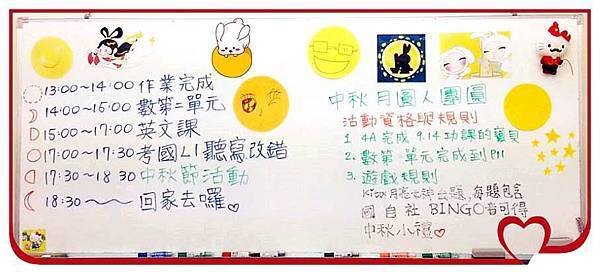 13:00~14:00 作業完成
14:00~15:00 數第二單元
15:00~17:00 英文課
17:00~17:30 考國L1聽寫改錯
17:30~18:30 中秋節活動
18:30~~ 回家去囉
中秋月圓人團圓
活動資格&規則
1. 4A完成 9.14功課的寶貝
2. 數第 單元完成到P11
3. 遊戲規則
月亮女神出題,每題包含
國 自 社 BINGO者可得
中秋小禮